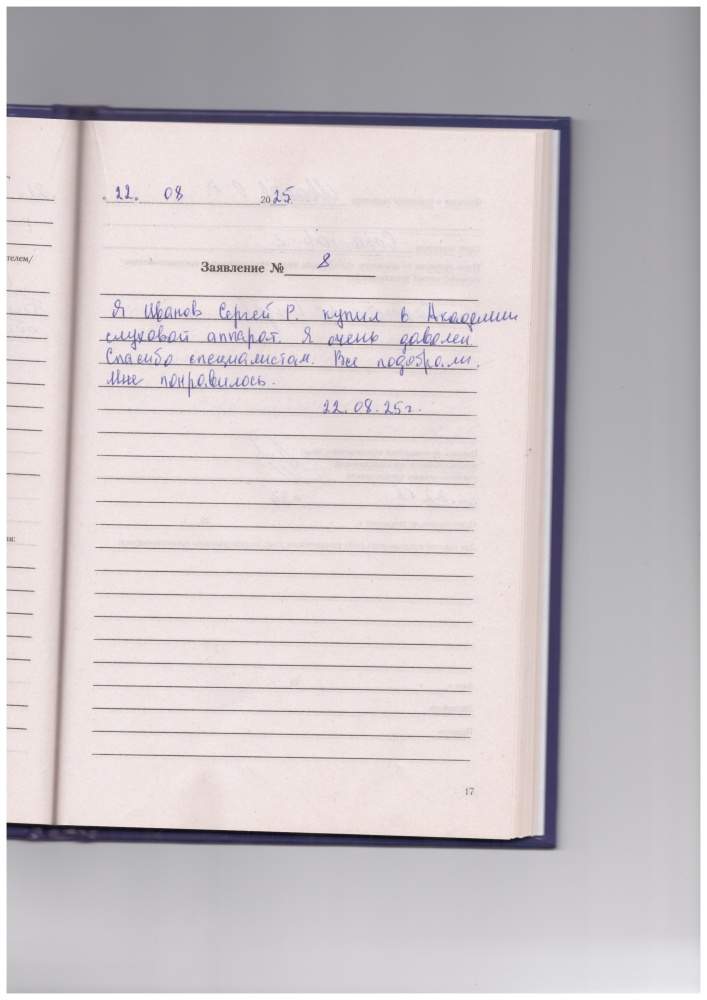 « 22. 08 2025
телем/
Заявление № 8
Я Иванов Сергей Р. купил в Академии
слуховой аппарат. Я очень даволен.
Спасибо специалистам. Все подобрали.
Мне понравилось.
22.08.25г.
ии:
17